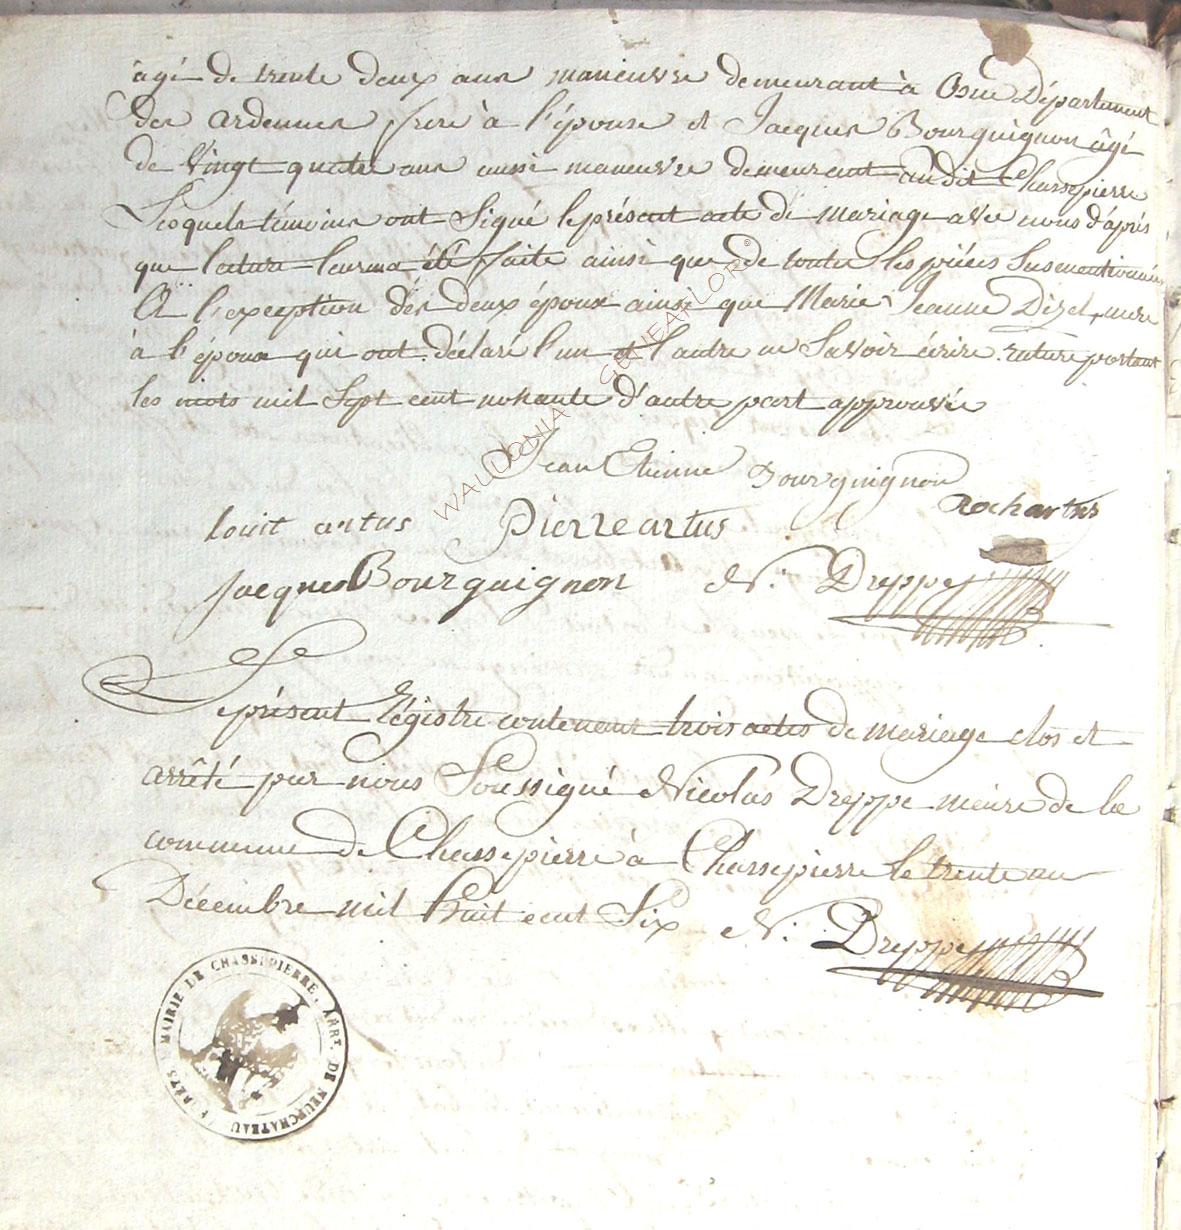 âgé de trente deux ans maneuvre demeurant à Osne Département
des ardennes frere à l'épouse et Jacques Bourguignon âgé
de vingt quatre ans aussi maneuvre demeurant audit Chassepierre
lesquels témoins ont signé le présent acte de mariage avec nous d'après
que lecture leur a été faite ainsi que de toutes les pièces susmentionnées
à l'exception des deux époux ainsi que Marie Jeanne Dizel, mere
à l'époux qui ont déclaré l'un et l'autre ne savoir écrire rature portant
les mots mil sept cent nonante d'autre part approuvée
Jean Etienne Bourguignon
Rochartus
louit artus Pierre artus
Jacques Bourguignon N. Dreppe
Le présent Régistre contenant trois actes de mariage clos et
arrêté par nous Soussigné Nicolas Dreppe meire de la
commune de Chassepierre à Chassepierre le trente un
Décembre mil huit cent six N. Dreppe
MAIRIE DE CHASSEPIERRE, ARRT. DE NEUFCHATEAU FORETS
WALLONIA GENEAFLOR ©